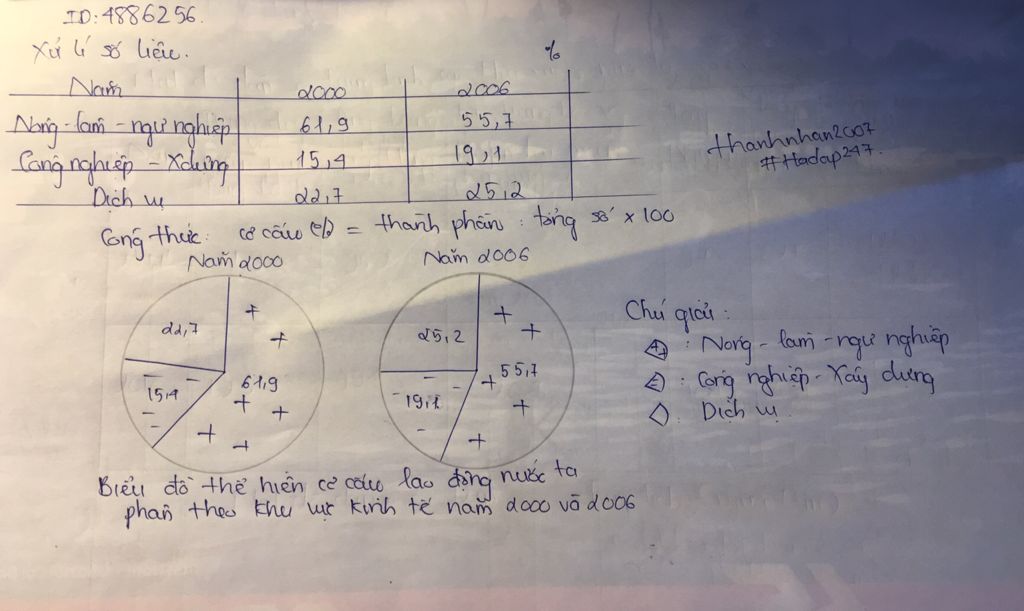 ID: 4886256.
Xử lí số liệu.
%
Năm 2000 2006
Nông - lâm - ngư nghiệp 61,9 55,7
Công nghiệp - Xdựng 15,4 19,1
Dịch vụ 22,7 25,2
thanhnhan2007
#Hadap247.
Công thức: cơ cấu (%) = thành phần : tổng số x 100
Năm 2000 Năm 2006
22,7
15,4
61,9
25,2
19,1
55,7
Chú giải:
+ : Nông - lâm - ngư nghiệp
- : Công nghiệp - Xây dựng
: Dịch vụ
Biểu đồ thể hiện cơ cấu lao động nước ta
phân theo khu vực kinh tế năm 2000 và 2006